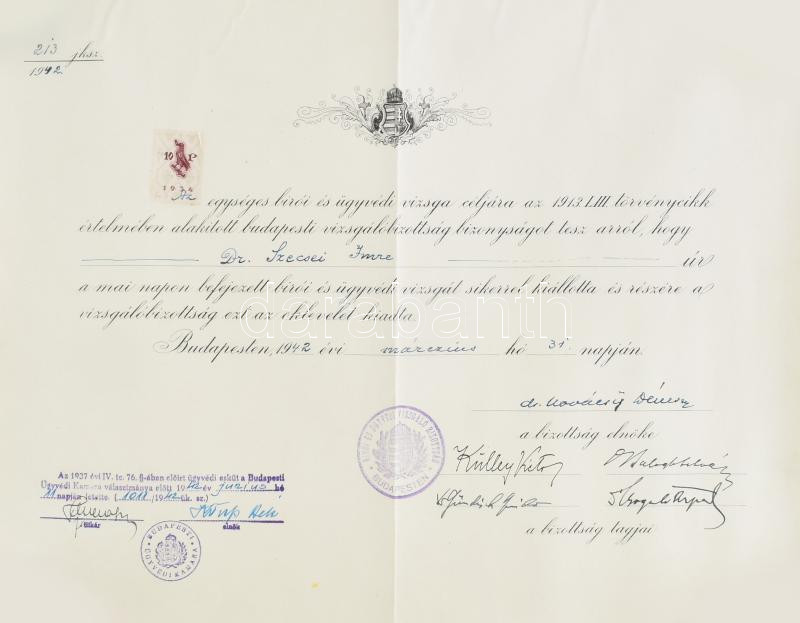 213 jksz.
1942.
10 P
Az egységes birói és ügyvédi vizsga céljára az 1913. LIII. törvénycikk
értelmében alakított budapesti vizsgálóbizottság bizonyságot tesz arról, hogy
Dr. Szecsei Imre úr
a mai napon befejezett birói és ügyvédi vizsgát sikerrel kiállotta és részére a
vizsgálóbizottság ezt az oklevelet kiadta.
darabanth
Budapesten, 1942 évi márczius hó 31. napján.
a bizottság elnöke
BUDAPESTEN
Az 1937 évi IV. tc. 76. §-ában előirt ügyvédi esküt a Budapesti
Ügyvédi Kamara választmánya előtt 1942 év junius hó
11 napján letette. (1011/1942 ük. sz.)
titkár elnök
a bizottság tagjai
BUDAPESTI
ÜGYVÉDI KAMARA